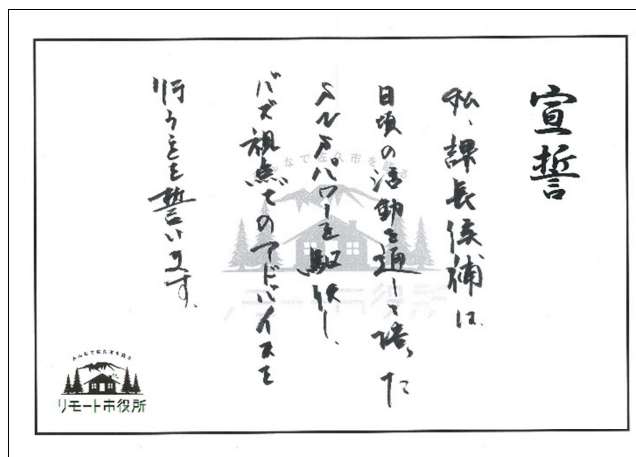 宣誓
私、課長候補は
日頃の活動を通して培った
SNSパワーを駆使し、
バズ視点でのアドバイスを
行うことを誓います。
みんなで佐久市を語る
リモート市役所
リモート市役所